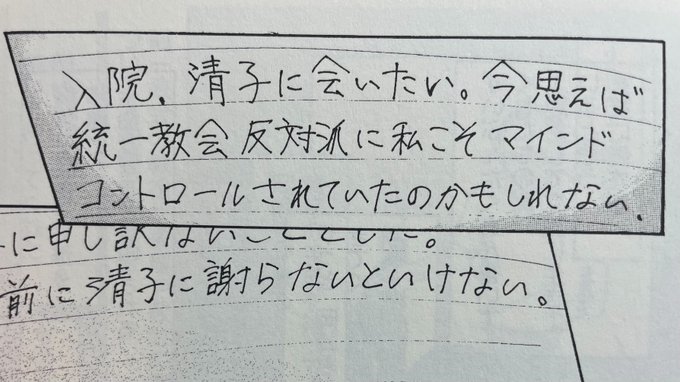 入院。清子に会いたい。今思えば
統一教会反対派に私こそマインド
コントロールされていたのかもしれない。
に申し訳ないことをした。
前に清子に謝らないといけない。